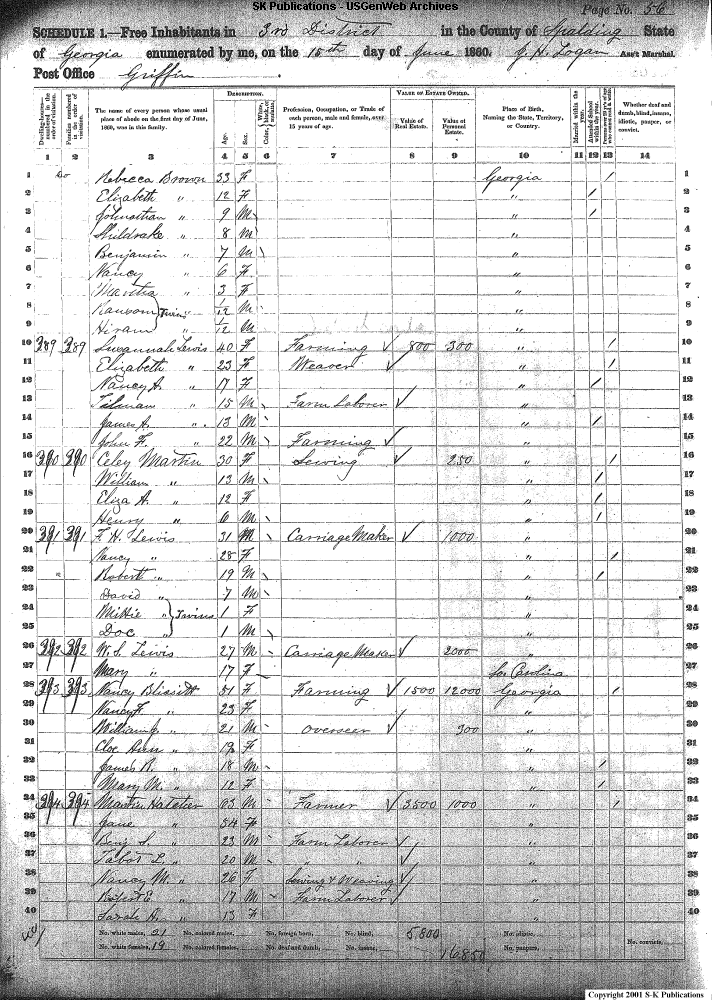 SK Publications - USGenWeb Archives
Page No. 56
SCHEDULE 1.—Free Inhabitants in 3rd District in the County of Spalding State
of Georgia enumerated by me, on the 15th day of June 1860. J. H. Logan Ass't Marshal.
Post Office Griffin.
Dwelling-houses— numbered in the order of visitation.
Families numbered in the order of visitation.
The name of every person whose usual place of abode on the first day of June, 1860, was in this family.
DESCRIPTION.
Age.
Sex.
Color, White, black, or mulatto.
Profession, Occupation, or Trade of each person, male and female, over 15 years of age.
VALUE OF ESTATE OWNED.
Value of Real Estate.
Value of Personal Estate.
Place of Birth, Naming the State, Territory, or Country.
Married within the year.
Attended School within the year.
Persons over 20 y'rs of age who cannot read & write.
Whether deaf and dumb, blind, insane, idiotic, pauper, or convict.
1 2 3 4 5 6 7 8 9 10 11 12 13 14
1 Do Rebecca Brown 33 F Georgia / 1
2 Elizabeth " 12 F " / 2
3 Johnathan " 9 M " / 3
4 " 8 M " 4
5 Benjamin " 7 M " 5
6 Nancy " 6 F " 6
7 Martha " 3 F " 7
8 Ransom } Twins " 1/12 M " 8
9 Hiram " 1/12 M " 9
10 389 389 Susannah Lewis 40 F Farming ✓ 800 300 " / 10
11 Elizabeth " 23 F Weaver ✓ " / 11
12 Nancy A. " 17 F " / 12
13 Tilman " 15 M Farm Laborer ✓ " 13
14 James A. " 13 M " / 14
15 John F. " 22 M Farming ✓ " 15
16 390 390 Celey Martin 30 F Sewing ✓ 250 " / 16
17 William " 13 M " / 17
18 Eliza A. " 12 F " / 18
19 Henry " 6 M " / 19
20 391 391 F. H. Lewis 31 M Carriage Maker ✓ 1000 " 20
21 Nancy " 28 F " / 21
22 " Robert " 19 M " / 22
23 David " 7 M " 23
24 Mittie " } Twins 1 F " 24
25 Doc " 1 M " 25
26 392 392 W. S. Lewis 27 M Carriage Maker ✓ 2000 " 26
27 Mary " 17 F So. Carolina 27
28 393 393 Nancy Blissitt 51 F Farming ✓ 1500 12000 Georgia / 28
29 Nancy F. " 23 F " 29
30 William J. " 21 M Overseer ✓ 300 " 30
31 Cloe Ann " 19 F " 31
32 James R. " 18 M " / 32
33 Mary M. " 12 F " / 33
34 394 394 Martin 63 M Farmer ✓ 3500 1000 " / 34
35 Jane " 54 F " 35
36 Benj. S. " 23 M Farm Laborer ✓ " 36
37 Tabot L. " 20 M " " ✓ " 37
38 Nancy M. " 26 F Sewing & Weaving ✓ " 38
39 " 17 M Farm Laborer ✓ " 39
40 Sarah A. " 13 F " 40
No. white males, 21 No. colored males, No. foreign born, No. blind, 5,800 No. idiotic,
No. white females, 19 No. colored females, No. deaf and dumb, No. insane, 16850 No. paupers, No. convicts,
Copyright 2001 S-K Publications